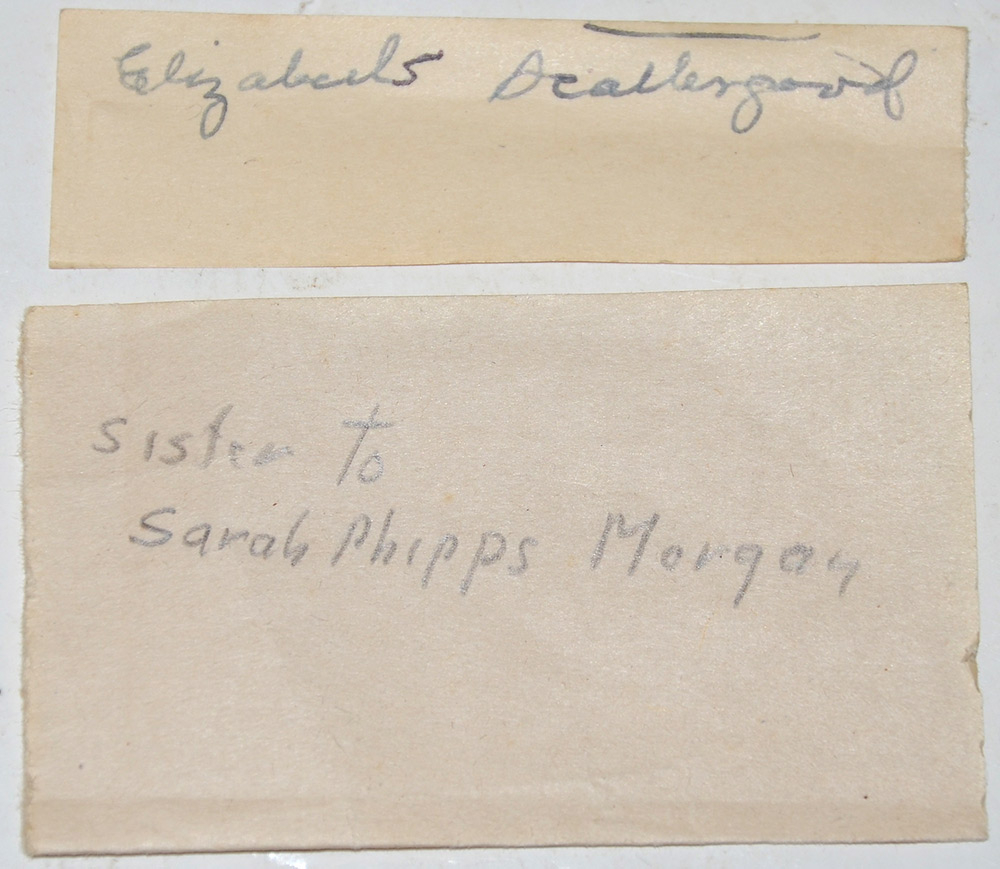 Elizabeth Scattergood
sister to
Sarah Phipps Morgan